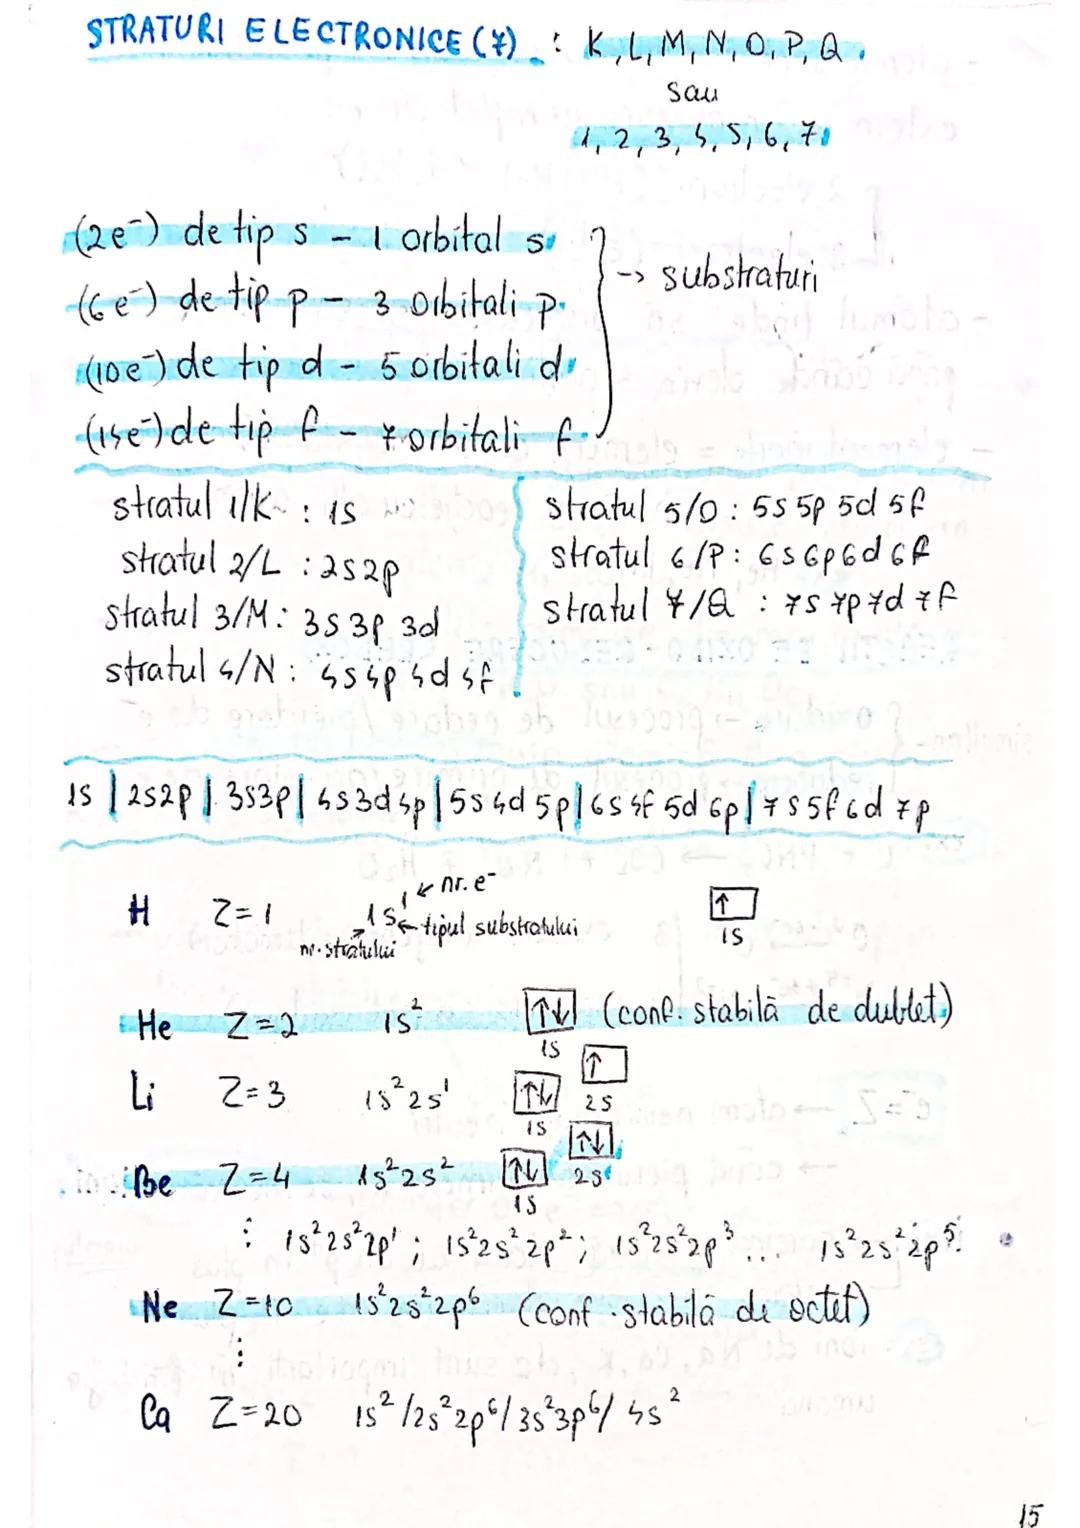 STRATURI ELECTRONICE (7) : K, L, M, N, O, P, Q.
sau
1, 2, 3, 4, 5, 6, 7.
(2e⁻) de tip s - 1 orbital s
(6e⁻) de tip p - 3 orbitali p
(10e⁻) de tip d - 5 orbitali d
(14e⁻) de tip f - 7 orbitali f
} → substraturi
stratul 1/K : 1s
stratul 2/L : 2s2p
stratul 3/M : 3s 3p 3d
stratul 4/N : 4s4p 4d 4f
stratul 5/O : 5s 5p 5d 5f
stratul 6/P : 6s 6p 6d 6f
stratul 7/Q : 7s 7p 7d 7f
1s | 2s2p | 3s3p | 4s3d4p | 5s4d5p | 6s4f5d6p | 7s5f6d7p
H Z=1 1s¹ ← nr. e⁻ ↑
← tipul substratului 1s
nr. stratului
He Z=2 1s² ↑↓ (conf. stabilă de dublet)
1s
Li Z=3 1s²2s¹ ↑↓ ↑
1s 2s
Be Z=4 1s²2s² ↑↓ ↑↓
1s 2s
⋮ 1s²2s²2p¹ ; 1s²2s²2p² ; 1s²2s²2p³ ... 1s²2s²2p⁵.
Ne Z=10 1s²2s²2p⁶ (conf. stabilă de octet)
⋮
Ca Z=20 1s²/2s²2p⁶/3s²3p⁶/4s²
15